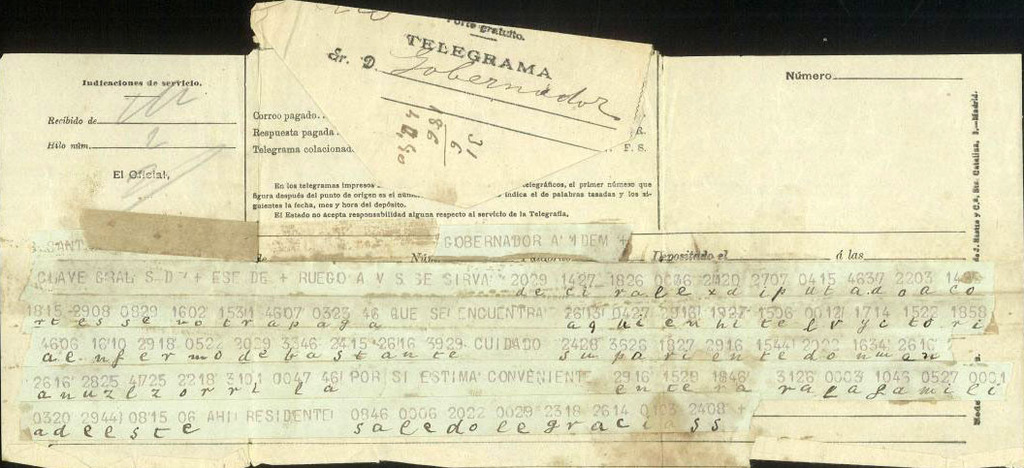 Porte gratuito.
TELEGRAMA
Sr. D. Gobernador
31
6
186
Indicaciones de servicio.
Recibido de
Hilo núm. 2
El Oficial,
Correo pagado.
Respuesta pagada
Telegrama colacionado
R.
F. S.
Número
En los telegramas impresos telegráficos, el primer número que
figura después del punto de origen es el núm indica el de palabras tasadas y los si-
guientes la fecha, mes y hora del depósito.
El Estado no acepta responsabilidad alguna respecto al servicio de la Telegrafía,
GOBERNADOR A IDEM +
de Núm Depositado el á las
CLAVE GRAL S. D. + ESE DE + RUEGO A V S SE SIRVA 2029 1427 1826 0036 2420 2707 0415 4637 2203
deciralexdiputadoaco
1815 2908 0829 1602 1531 4607 0323 46 QUE SE ENCUENTRA 2613 0427 2916 1927 1506 0012 1714 1522 1858
rtes aquienhitelvyctori
4606 1610 2918 0522 3029 3346 2415 2616 3929 CUIDADO 2428 3626 1827 2916 1544 2022 1634 2616
aenfermodebastante suparientedonman
2616 2825 4725 2218 3101 0047 46 POR SI ESTIMA CONVENIENTE 2916 1529 1846 3126 0003 1043 0527 0001
anuelzorrila enterarafamili
0320 2944 0815 06 AHI RESIDENTE 0946 0006 2022 0029 2318 2614 0103 2408 +
adeeste saledolegraciass